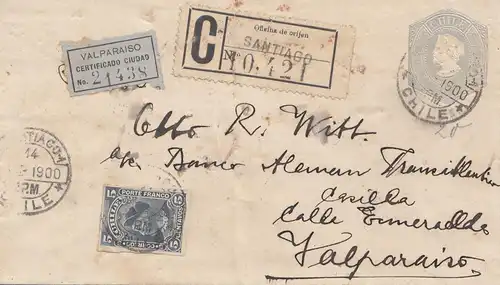 VALPARAISO
CERTIFICADO CIUDAD
No. 21438
C
Oficina de orijen
SANTIAGO
No 0.421
CHILE
1900
CHILE
20
SANTIAGO
14
1900
CHILE
Otto R. Witt.
Banco Aleman Transatlantico
Casilla
Calle Esmeralda
Valparaiso.
15 PORTE FRANCO 15
COLON
CENTAVOS